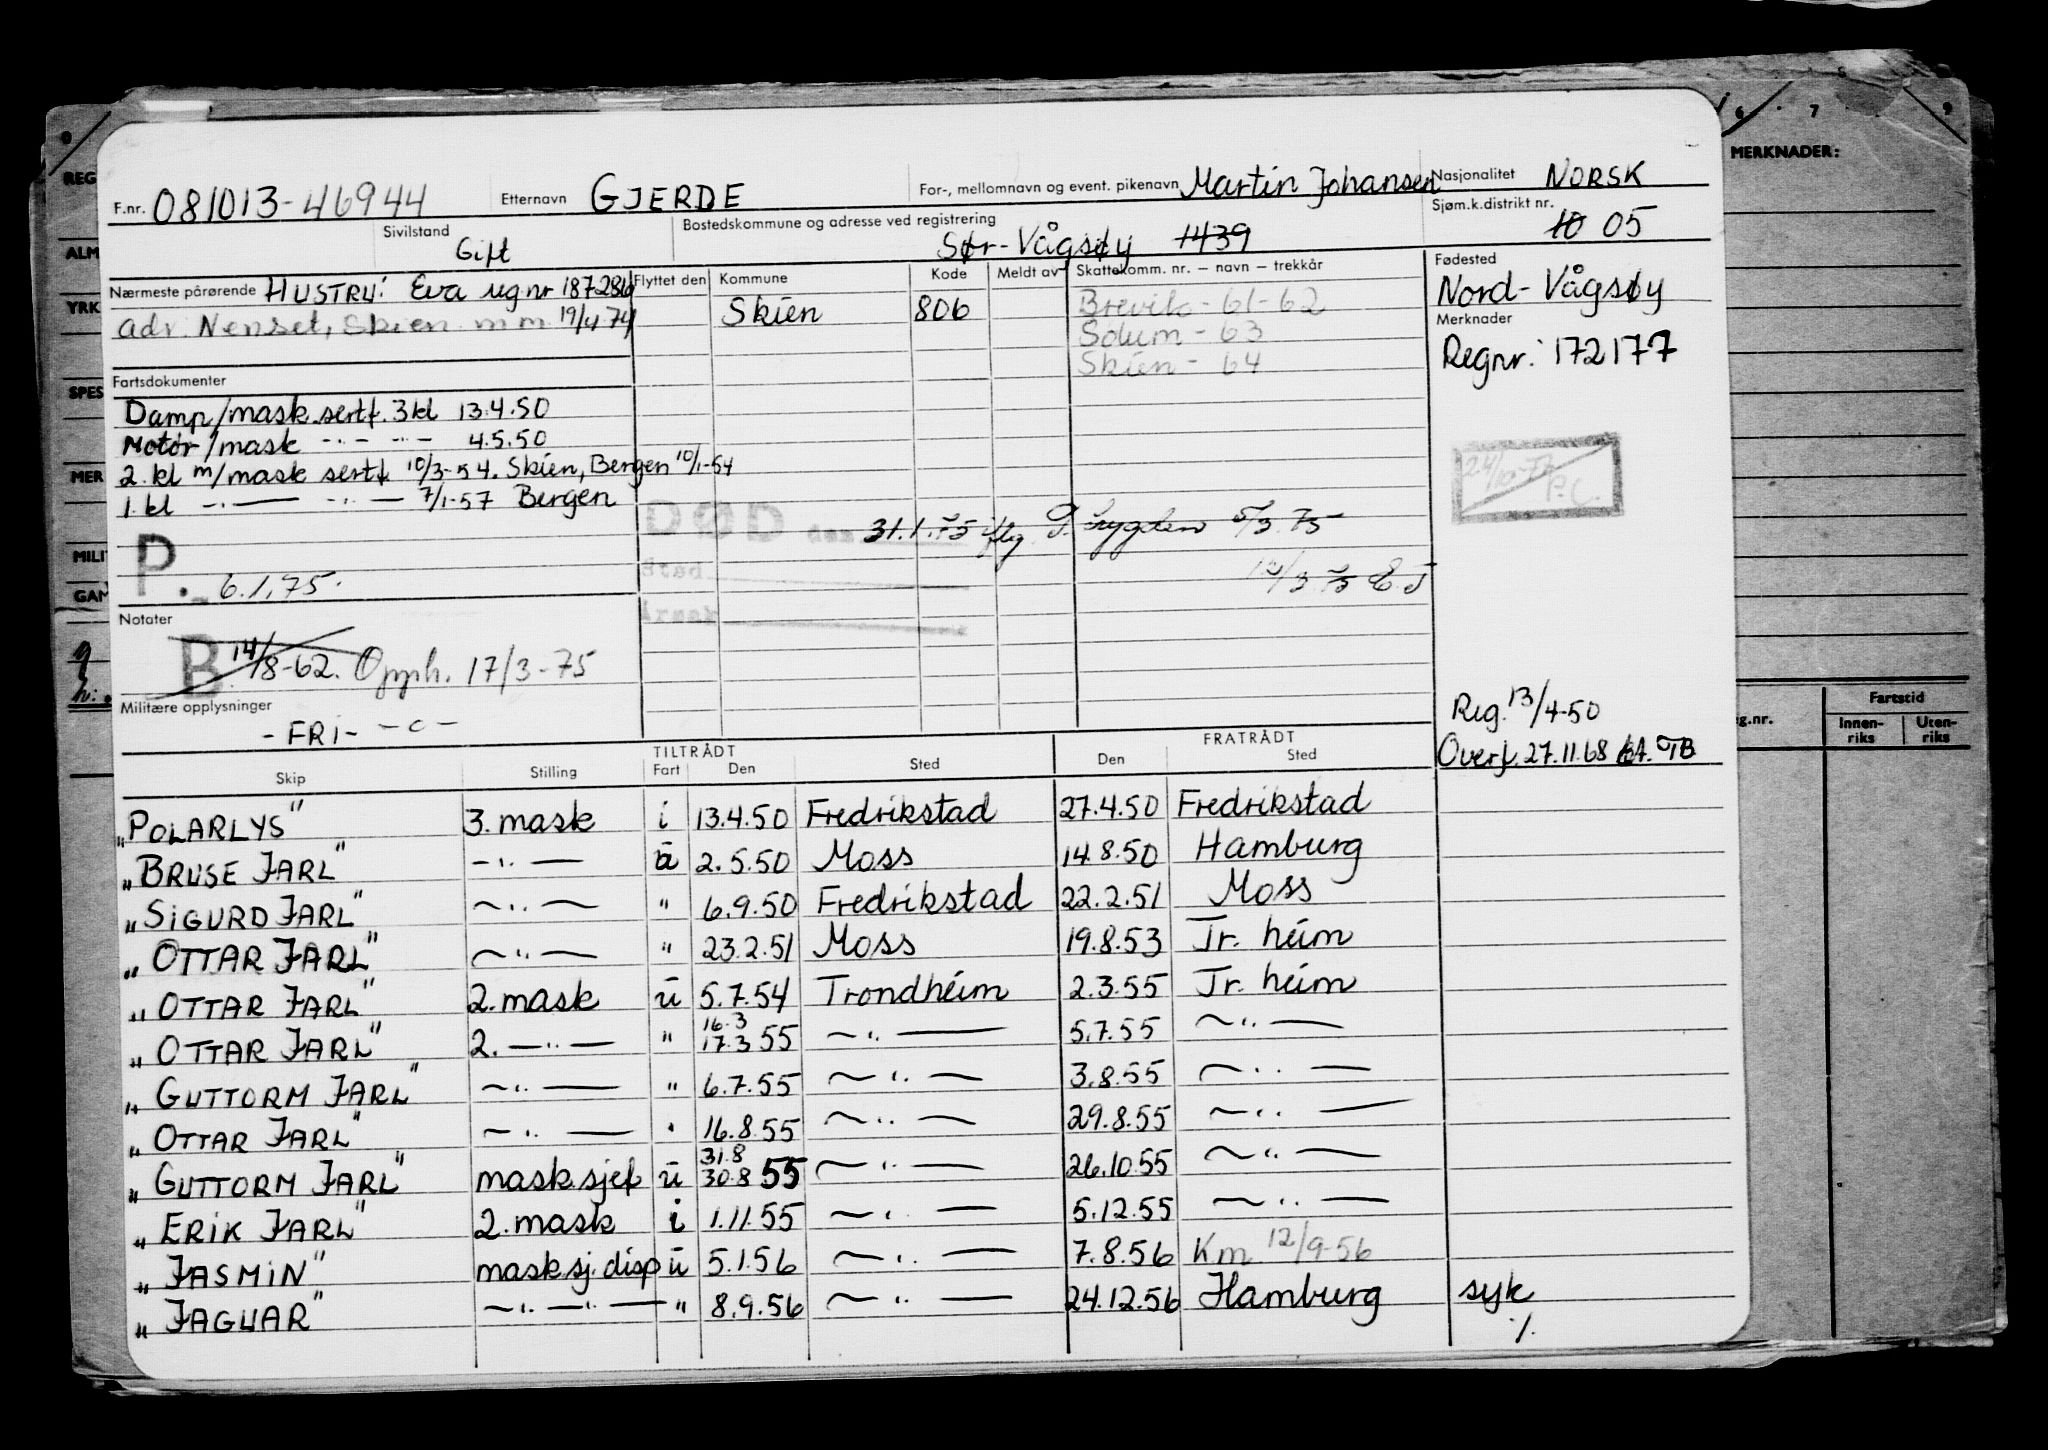 F.nr. 081013-46944 Etternavn GJERDE For-, mellomnavn og event. pikenavn Martin Johansen Nasjonalitet NORSK
Sivilstand Gift Bostedskommune og adresse ved registrering Sør-Vågsøy 1439 Sjøm.k.distrikt nr. 10 05
Nærmeste pårørende HUSTRU: Eva reg nr 187286
adr. Nenset, Skien mm 19/4 74
Flyttet den Kommune Kode Meldt av Skattekomm. nr. – navn – trekkår
Skien 806 Brevik - 61-62
Solum - 63
Skien - 64
Fødested
Nord-Vågsøy
Merknader
Regnr: 172177
Fartsdokumenter
Damp/mask.sertf. 3 kl 13.4.50
Motor/mask -"- -"- 4.5.50
2. kl m/mask sertf 10/3-54. Skien, Bergen 10/1-54
1. kl -"- -"- 7/1-57 Bergen
P. 6.1.75.
DØD den 31.1.75 iflg. 5/3 75
Sted
Årsak
P.C.
Notater
B 14/8-62. Opph. 17/3-75
Militære opplysninger
-FRI- -"-
Reg. 13/4-50
Overf. 27.11.68
TILTRÅDT FRATRÅDT
Skip Stilling Fart Den Sted Den Sted
"POLARLYS" 3. mask i 13.4.50 Fredrikstad 27.4.50 Fredrikstad
"BRUSE JARL" -"- u 2.5.50 Moss 14.8.50 Hamburg
"SIGURD JARL" -"- " 6.9.50 Fredrikstad 22.2.51 Moss
"OTTAR JARL" -"- " 23.2.51 Moss 19.8.53 Tr.heim
"OTTAR JARL" 2. mask u 5.7.54 Trondheim 2.3.55 Tr.heim
"OTTAR JARL" 2. -"- " 16.3 17.3 55 -"- 5.7.55 -"-
"GUTTORM JARL" -"- " 6.7.55 -"- 3.8.55 -"-
"OTTAR JARL" -"- " 16.8.55 -"- 29.8.55 -"-
"GUTTORM JARL" mask.sjef u 31.8 30.8 55 -"- 26.10.55 -"-
"ERIK JARL" 2. mask i 1.11.55 -"- 5.12.55 -"-
"JASMIN" mask sj. disp u 5.1.56 -"- 7.8.56 Km 12/9-56
"JAGUAR" -"- -"- " 8.9.56 -"- 24.12.56 Hamburg syk
./.
6 7 9
MERKNADER:
REG
ALM
YRK
SPES
MER
MILI
GAM
g.nr.
Fartstid
Innen-
riks
Uten-
riks